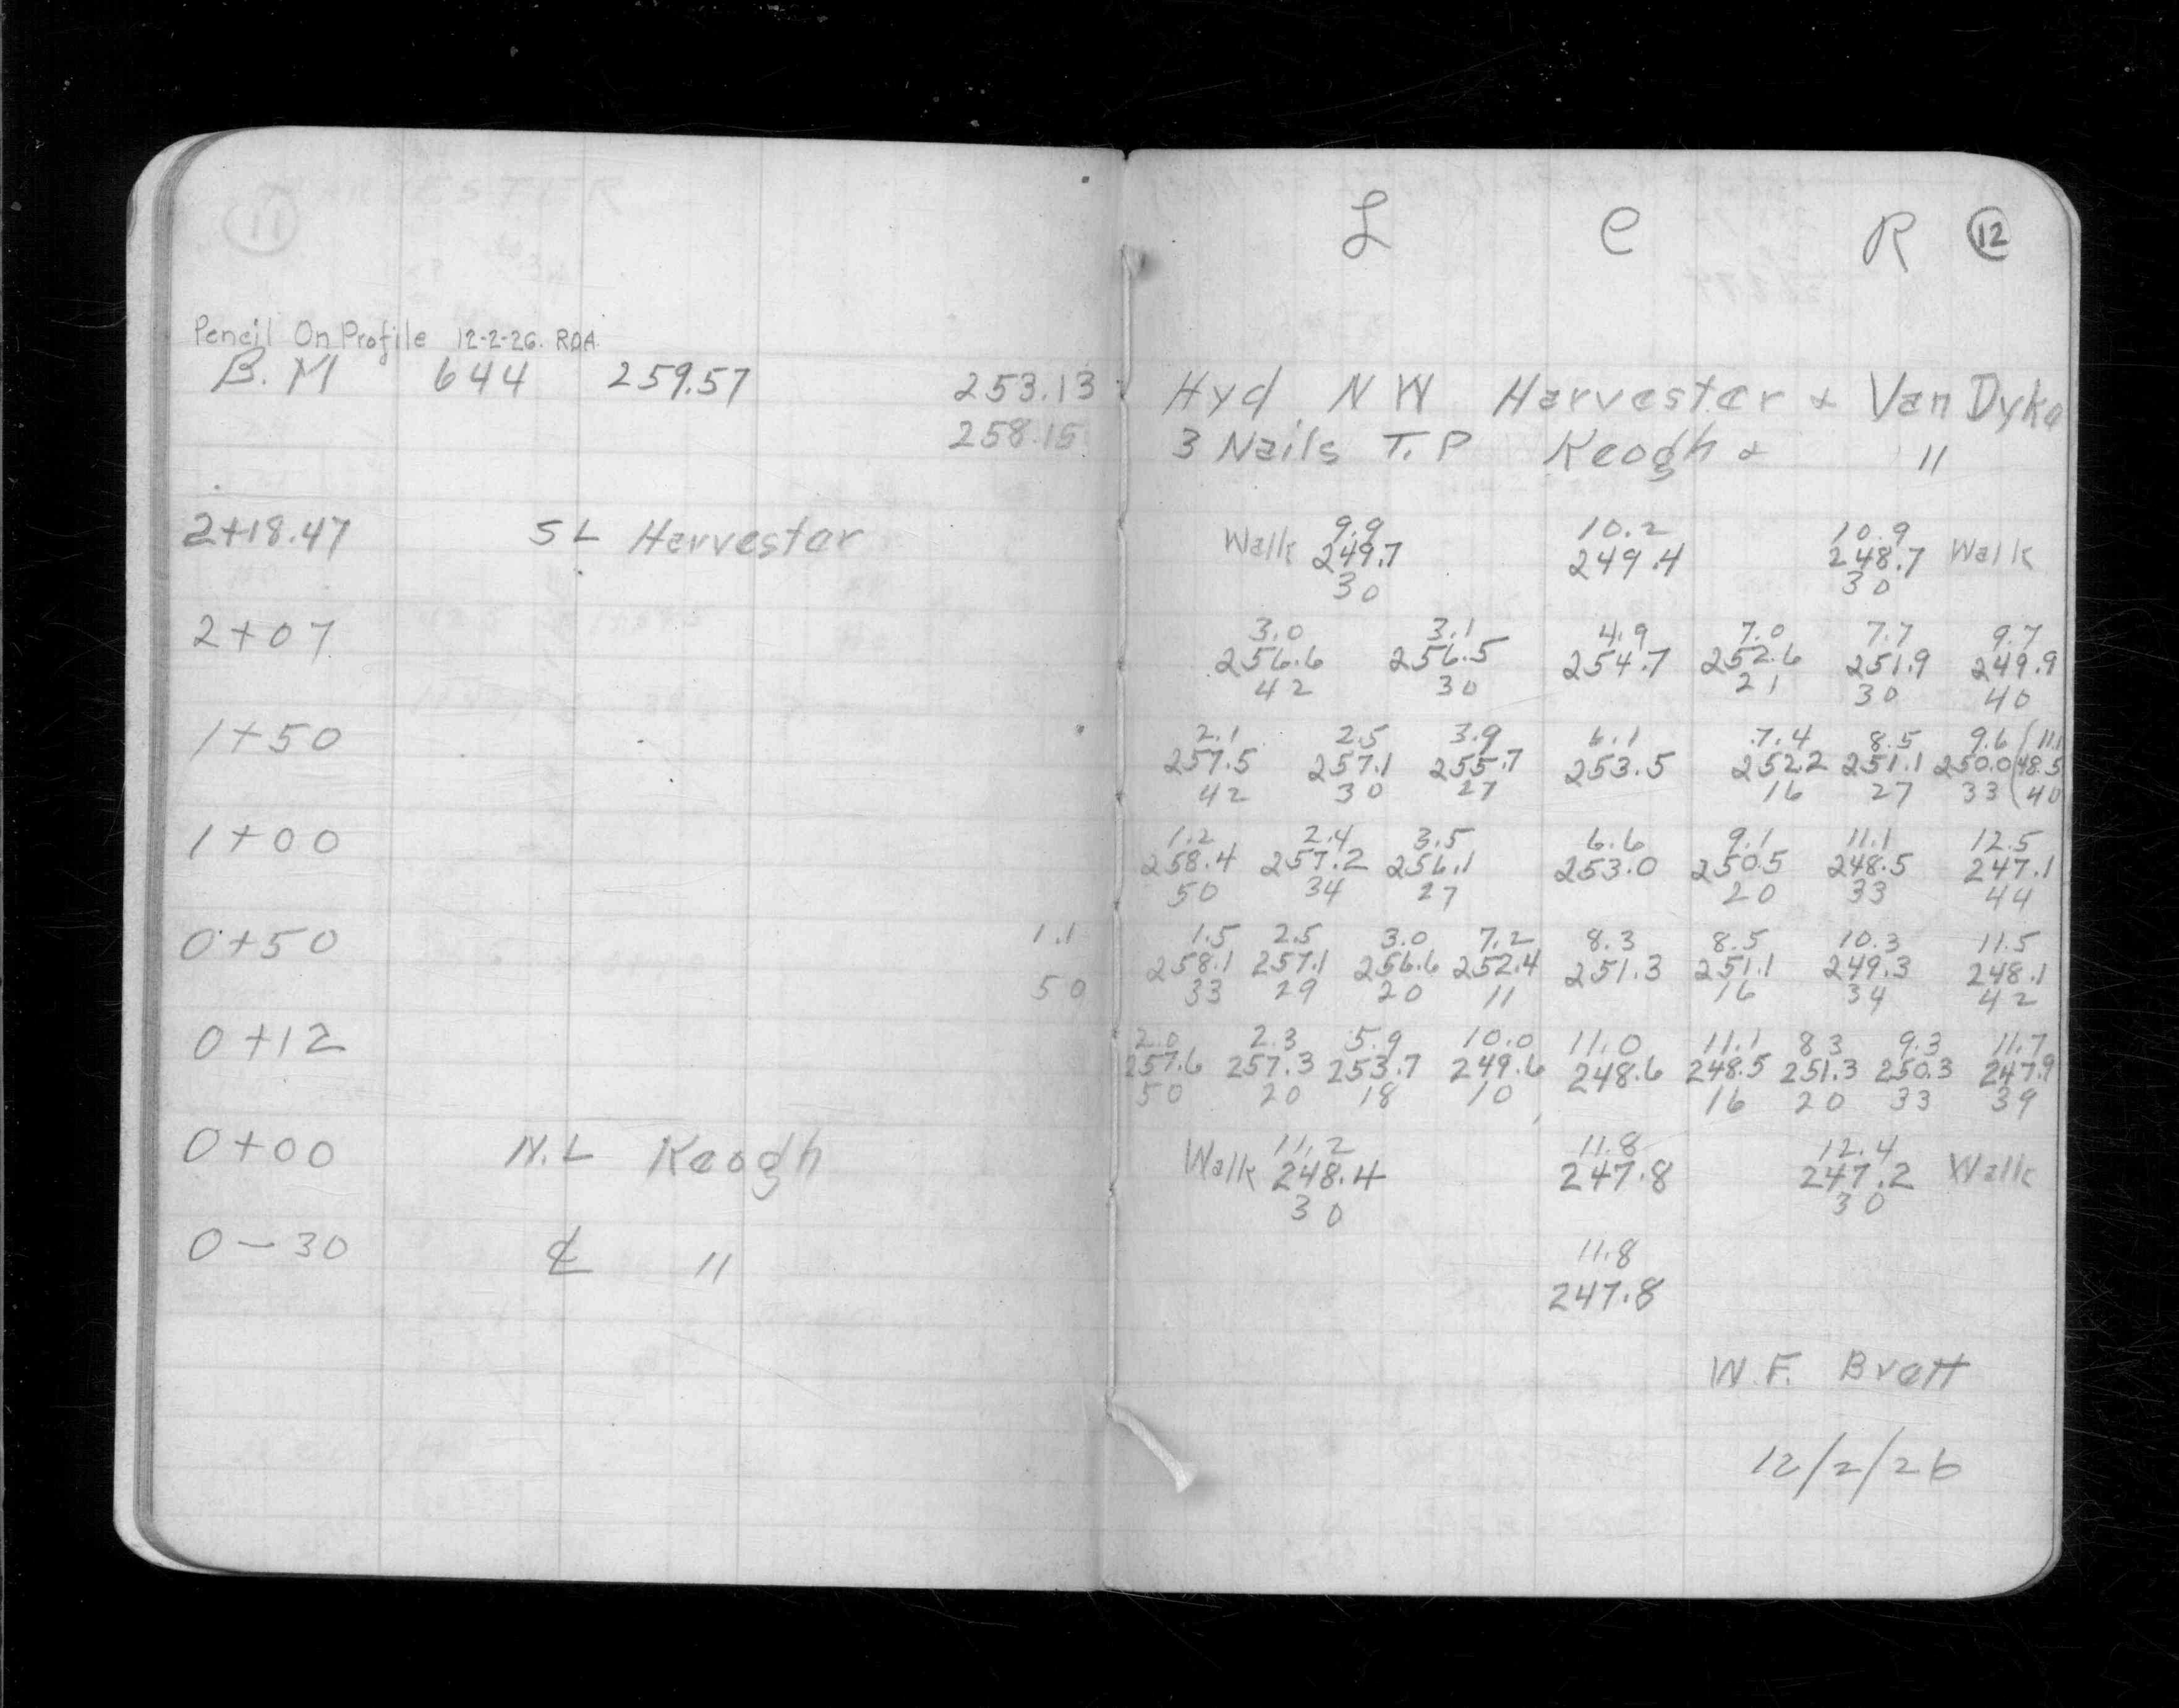 11
Pencil On Profile 12-2-26. RDA.
B.M 644 259.57 253.13
258.15
2+18.47 S L Harvester
2+07
1+50
1+00
0+50 1.1
50
0+12
0+00 N.L Keogh
0-30 ℄ "
L C R 12
Hyd NW Harvester + Van Dyke
3 Nails T.P Keogh + "
9.9 10.2 10.9
Walk 249.7 249.4 248.7 Walk
30 30
3.0 3.1 4.9 7.0 7.7 9.7
256.6 256.5 254.7 252.6 251.9 249.9
42 30 21 30 40
2.1 2.5 3.9 6.1 7.4 8.5 9.6 / 11.1
257.5 257.1 255.7 253.5 252.2 251.1 250.0 48.5
42 30 27 16 27 33 40
1.2 2.4 3.5 6.6 9.1 11.1 12.5
258.4 257.2 256.1 253.0 250.5 248.5 247.1
50 34 27 20 33 44
1.5 2.5 3.0 7.2 8.3 8.5 10.3 11.5
258.1 257.1 256.6 252.4 251.3 251.1 249.3 248.1
33 29 20 11 16 34 42
2.0 2.3 5.9 10.0 11.0 11.1 8.3 9.3 11.7
257.6 257.3 253.7 249.6 248.6 248.5 251.3 250.3 247.9
50 20 18 10 16 20 33 39
11.2 11.8 12.4
Walk 248.4 247.8 247.2 Walk
30 30
11.8
247.8
W.F. Brett
12/2/26